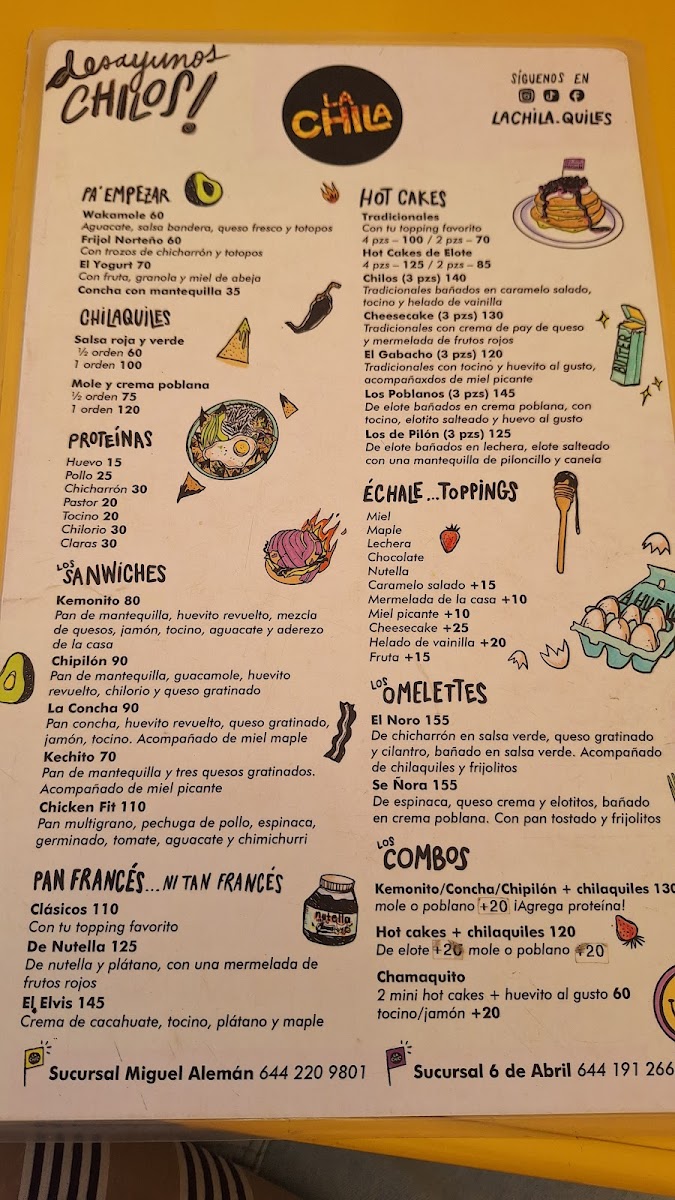 desayunos
CHILOS!
LA
CHILA
SÍGUENOS EN
LACHILA.QUILES
PA' EMPEZAR
Wakamole 60
Aguacate, salsa bandera, queso fresco y totopos
Frijol Norteño 60
Con trozos de chicharrón y totopos
El Yogurt 70
Con fruta, granola y miel de abeja
Concha con mantequilla 35
CHILAQUILES
Salsa roja y verde
½ orden 60
1 orden 100
Mole y crema poblana
½ orden 75
1 orden 120
PROTEÍNAS
Huevo 15
Pollo 25
Chicharrón 30
Pastor 20
Tocino 20
Chilorio 30
Claras 30
LOS SANWICHES
Kemonito 80
Pan de mantequilla, huevito revuelto, mezcla
de quesos, jamón, tocino, aguacate y aderezo
de la casa
Chipilón 90
Pan de mantequilla, guacamole, huevito
revuelto, chilorio y queso gratinado
La Concha 90
Pan concha, huevito revuelto, queso gratinado,
jamón, tocino. Acompañado de miel maple
Kechito 70
Pan de mantequilla y tres quesos gratinados.
Acompañado de miel picante
Chicken Fit 110
Pan multigrano, pechuga de pollo, espinaca,
germinado, tomate, aguacate y chimichurri
PAN FRANCÉS...NI TAN FRANCÉS
Clásicos 110
Con tu topping favorito
De Nutella 125
De nutella y plátano, con una mermelada de
frutos rojos
El Elvis 145
Crema de cacahuate, tocino, plátano y maple
nutella
HOT CAKES
Tradicionales
Con tu topping favorito
4 pzs – 100 / 2 pzs – 70
Hot Cakes de Elote
4 pzs – 125 / 2 pzs – 85
Chilos (3 pzs) 140
Tradicionales bañados en caramelo salado,
tocino y helado de vainilla
Cheesecake (3 pzs) 130
Tradicionales con crema de pay de queso
y mermelada de frutos rojos
El Gabacho (3 pzs) 120
Tradicionales con tocino y huevito al gusto,
acompañaxdos de miel picante
Los Poblanos (3 pzs) 145
De elote bañados en crema poblana, con
tocino, elotito salteado y huevo al gusto
Los de Pilón (3 pzs) 125
De elote bañados en lechera, elote salteado
con una mantequilla de piloncillo y canela
BUTTER
ÉCHALE...TOPPINGS
Miel
Maple
Lechera
Chocolate
Nutella
Caramelo salado +15
Mermelada de la casa +10
Miel picante +10
Cheesecake +25
Helado de vainilla +20
Fruta +15
LOS OMELETTES
El Noro 155
De chicharrón en salsa verde, queso gratinado
y cilantro, bañado en salsa verde. Acompañado
de chilaquiles y frijolitos
Se Ñora 155
De espinaca, queso crema y elotitos, bañado
en crema poblana. Con pan tostado y frijolitos
LOS COMBOS
Kemonito/Concha/Chipilón + chilaquiles 130
mole o poblano +20 ¡Agrega proteína!
Hot cakes + chilaquiles 120
De elote +20 mole o poblano +20
Chamaquito
2 mini hot cakes + huevito al gusto 60
tocino/jamón +20
Sucursal Miguel Alemán 644 220 9801
Sucursal 6 de Abril 644 191 266